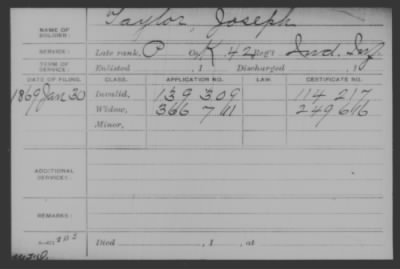 NAME OF SOLDIER: Taylor, Joseph
SERVICE: Late rank, P Co. K, 42 Reg't Ind. Inf.
TERM OF SERVICE: Enlisted , 1 Discharged , 1
DATE OF FILING. CLASS. APPLICATION NO. LAW. CERTIFICATE NO.
1869 Jan 30 Invalid, 139 309 114 217
Widow, 366 741
Minor,
ADDITIONAL SERVICES:
REMARKS:
Died , 1 , at